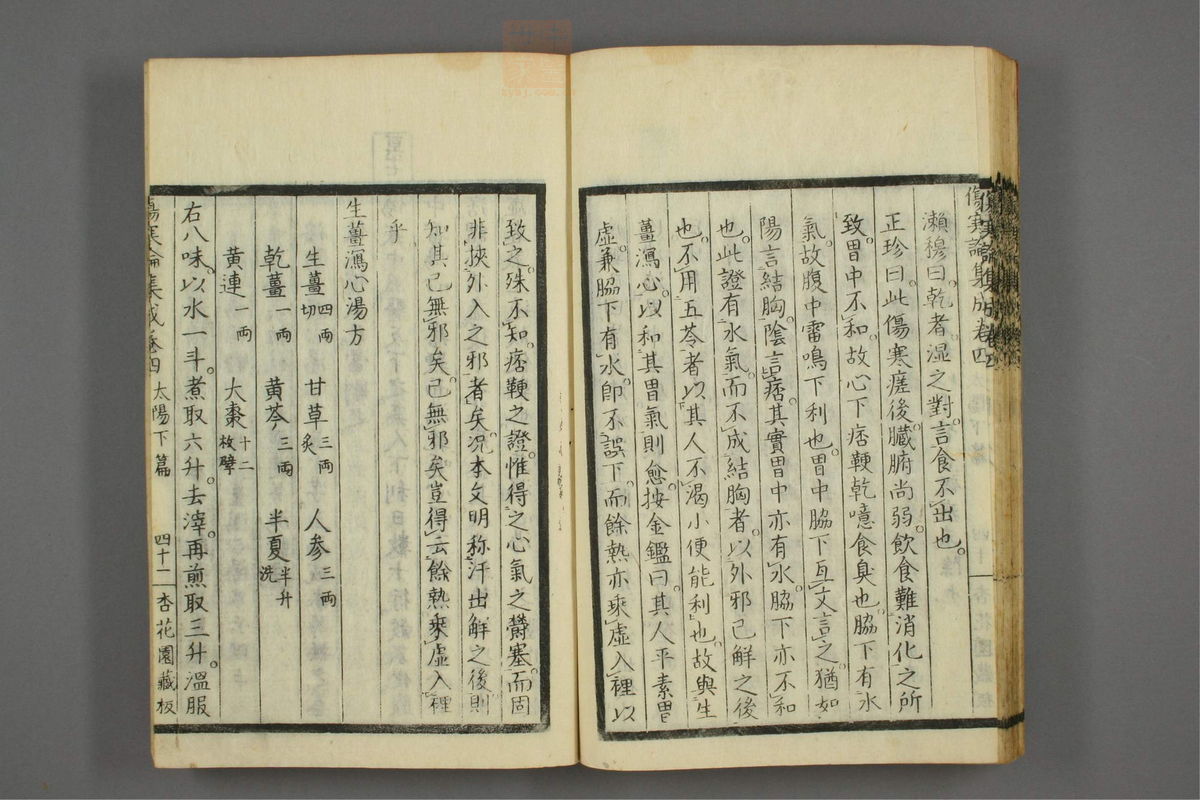 傷寒論集成卷四
瀨穆曰。乾者濕之對。言食不出也。
正珍曰。此傷寒瘥後。臟腑尚弱。飲食難消化之所
致。胃中不和。故心下痞鞕。乾噫食臭也。脇下有水
氣。故腹中雷鳴下利也。胃中脇下互文言之。猶如
陽言結胸。陰言痞。其實胃中亦有水。脇下亦不和
也。此證有水氣。而不成結胸者。以外邪已解之後
也。不用五苓者。以其人不渴小便能利也。故與生
薑瀉心。以和其胃氣則愈。按金鑑曰。其人平素胃
虛。兼脇下有水。卽不誤下。而餘熱亦乘虛入裡。以
致之殊不知。痞鞕之證。惟得之心氣之欝塞。而固
非挾外入之邪者矣。況本文明稱汗出解之後。則
知其已無邪矣。已無邪矣。豈得云餘熱乘虛入裡
乎
生薑瀉心湯方
生薑四兩切 甘草三兩炙 人參三兩
乾薑一兩 黃芩三兩 半夏半升洗
黃連一兩 大棗十二枚擘
右八味。以水一斗。煮取六升。去滓。再煎取三升。溫服
傷寒論集成卷四 太陽下篇 四十二 杏花園藏板